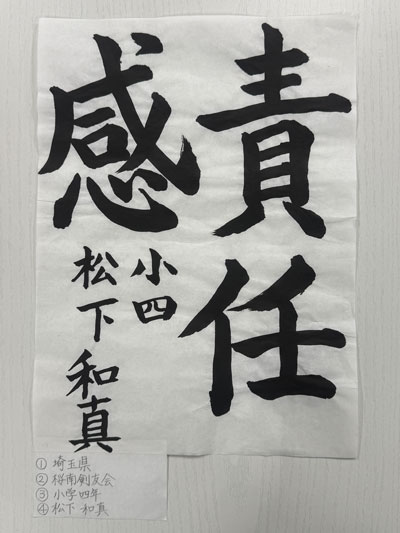 責任
感
小四
松下和真
① 埼玉県
② 桜南剣友会
③ 小学四年
④ 松下 和真